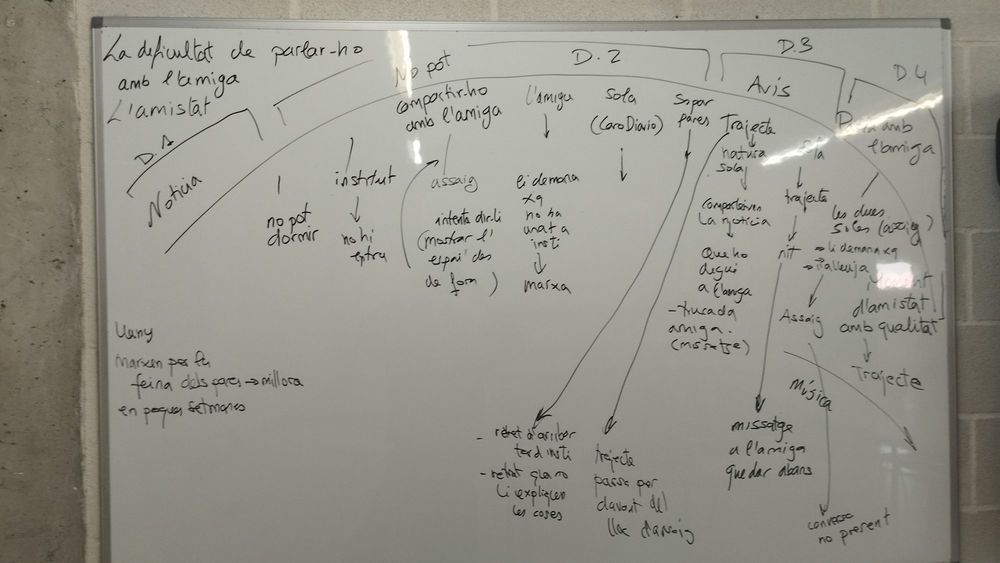 La dificultat de parlar-ho
amb l'amiga
L'amistat
D.1
Notícia
no pot
dormir
institut
no hi
entra
No pot
compartir-ho
amb l'amiga
assaig
intenta dir-li
(mostrar l'
espai des
de fora)
D.2
l'amiga
li demana
xq
no ha
anat a
insti
marxa
Sola
(Caro Diario)
Sopar
pares
- retret d'arribar
tard insti
- retret que no
li expliquen
les coses
D.3
Avis
Trajecte
natura
sola
comparteixen
la notícia
Que ho
digui
a l'amiga
- trucada
amiga.
(missatge)
trajecte
passa per
davant del
lloc d'assaig
Sola
trajecte
nit
missatge
a l'amiga
quedar abans
D.4
amb
l'amiga
les dues
soles (assaig)
→ li demana xq
→
Assaig
Música
conversa
no present
d'amistat
amb qualitat
Trajecte
Lluny
Marxen per la
feina dels pares → millora
en poques setmanes